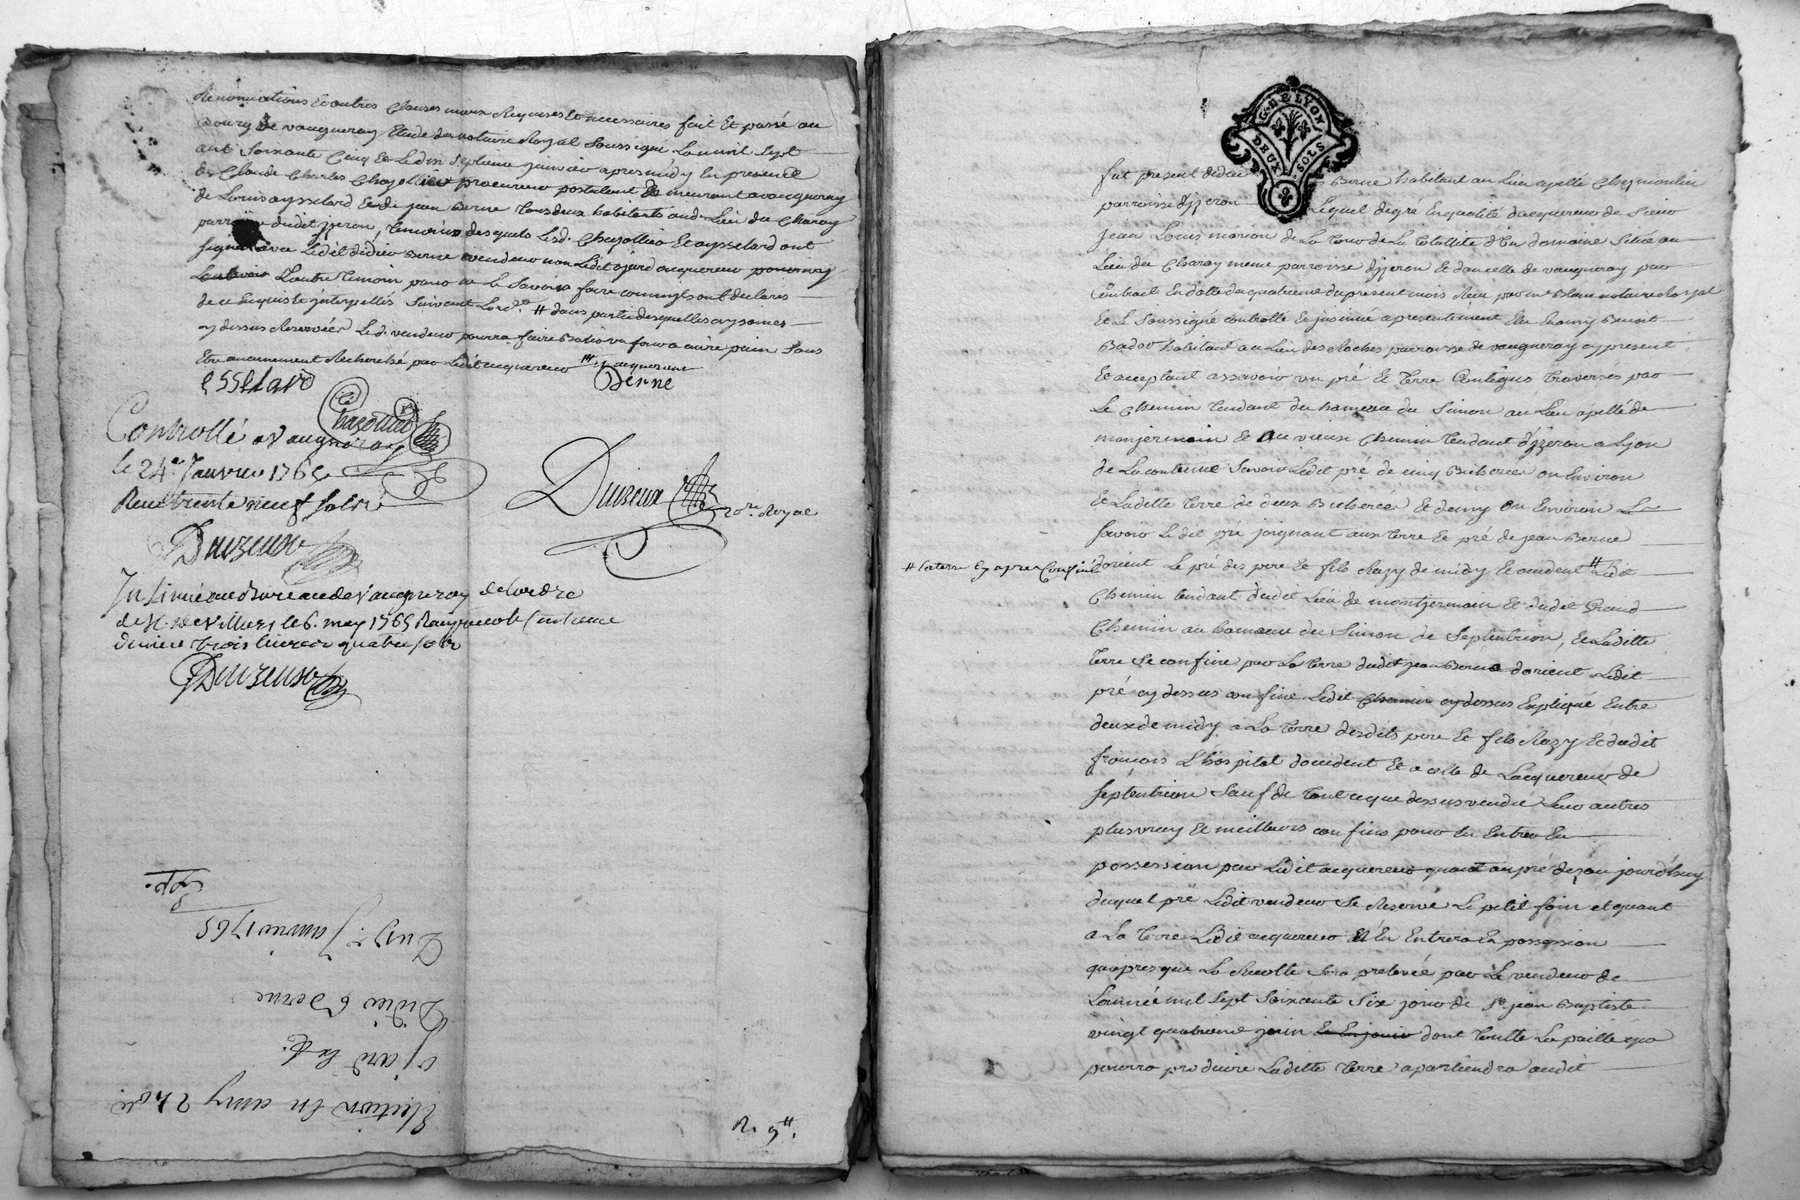 Renonciations Et autres Clauses mieux Requises Et necessaires fait Et passé au
Bourg de vaugneray Etude du notaire Royal Soussigné Lan mil Sept
cent Soixante Cinq Et Le dix Septieme janvier apres midy En presence
de Claude Charles Chazottier procureur postulant de meurant a vaugneray
de Louis aysselard Et de jean Berne tous deux habitants aud. Lieu du Charay
parroisse dudit jzeron, temoins desquels Lesd. Chazottier Et aysselard ont
signé avec Ledit didier Berne vendeur non Ledit ojard acquereur
L'autre temoin pour ne le Savoir faire comme ils ont declarés
de ce Enquis Et interpellés Suivant Lord.ce # dans partie desquelles
cy dessus Reservées Led. vendeur pourra faire
Etre aucunement Recherché par Ledit acquereur
ESSElard
Berne
Chazottier
Controllé a Vaugneray
le 24e Janvier 1765
Reçu trente neuf sols
Duizeux
Duizeux Nore. Royal
Insinué au Bureau de Vaugneray de lordre
de Mr de Villiers le 6. may 1765 Reçu pour le Centieme
denier trois livres quatre sols
Duizeux
Election En amy
ojard
Didier Berne
Du 17e. Janvier 1765
Exp.
R. 9#.
G. DE LYON
DEUX SOLS
fut present didier Berne habitant au Lieu apellé Chezmoulin
parroisse d'jzeron Lequel de gré En qualité d'acquereur de Sieur
jean Louis marion de La Tour de La totallité d'Un domaine Situé au
Lieu du Charay meme parroisse d'jzeron Et dans celle de vaugneray par
Contrait En datte du quatrieme du present mois Reçu par me Blanc notaire Royal
Et Le Soussigné controllé Et jnsinué a presentement Benoit
habitant au Lieu des Roches parroisse de vaugneray cy present
Et acceptant assavoir un pré Et terre Contigus traversés par
Le Chemin tendant du hameau du Simon au Lieu apellé de
montjermain Et au vieux Chemin tendant d'jzeron a Lyon
de La contenue Savoir Ledit pré de cinq Bicherées ou Environ
Et Laditte terre de deux Bicherées Et demy ou Environ
Savoir Ledit pré joignant aux terre Et pré de jean Berne
# la terre Cy apres Confinée
dorient Le pré des pere Et fils Razy de midy Et occident # Ledit
Chemin tendant dudit Lieu de montjermain Et dudit Grand
Chemin au hameau du Simon de Septentrion, Et Laditte
terre Se confine par La terre dudit jean Berne dorient Ledit
pré cy dessus confiné Ledit Chemin cy dessus Expliqué Entre
deux de midy a La terre desdits pere Et fils Razy Et dudit
françois L'hospital d'occident Et a celle de Lacquereur de
Septentrion Sauf de tout ce que dessus vendu Leurs autres
plus vray Et meilleurs confins pour En Entrer En
possession par Ledit acquereur quant au pré des au jourd'huy
duquel pré Ledit vendeur Se Reserve Le petit foin et quant
a La terre Ledit acquereur N'En Entrera En possession
qu'apres que La Recolte Sera prelevée par Le vendeur de
Lannée mil Sept Soixante Six jour de St. jean Baptiste
vingt quatrieme juin dont toutte La paille que
pourra produire Laditte terre apartiendra audit